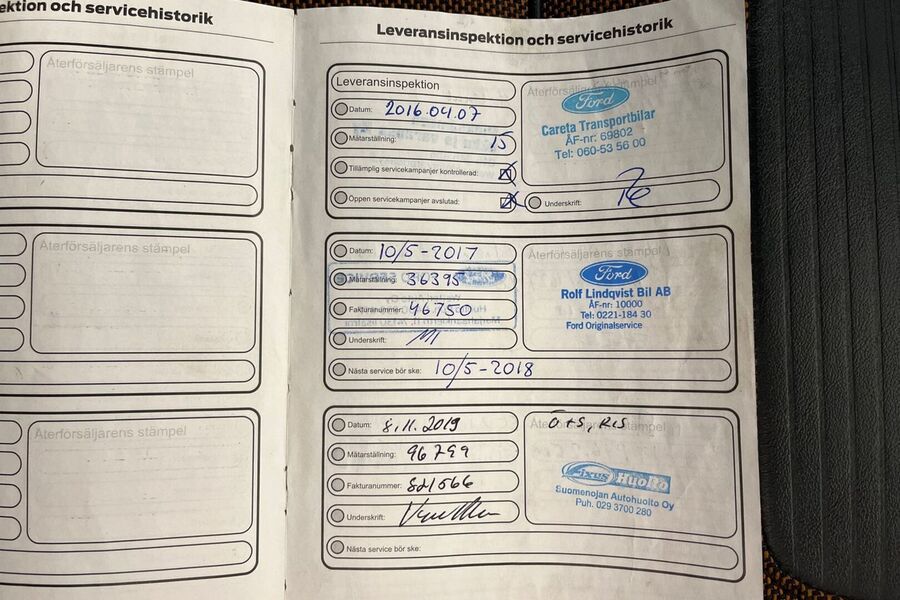 ektion och servicehistorik
Återförsäljarens stämpel
Återförsäljarens stämpel
Återförsäljarens stämpel
Leveransinspektion och servicehistorik
Leveransinspektion
Datum: 2016.04.07
Mätarställning: 15
Tillämplig servicekampanjer kontrollerad:
Öppen servicekampanjer avslutad:
Ford
Careta Transportbilar
ÅF-nr: 69802
Tel: 060-53 56 00
Underskrift:
Datum: 10/5-2017
Mätarställning: 36395
Fakturanummer: 46750
Underskrift:
Nästa service bör ske: 10/5-2018
Återförsäljarens stämpel
Ford
Rolf Lindqvist Bil AB
ÅF-nr: 10000
Tel: 0221-184 30
Ford Originalservice
Datum: 8.11.2019
Mätarställning: 96799
Fakturanummer: 821566
Underskrift:
Nästa service bör ske:
Fixus HuoRo
Suomenojan Autohuolto Oy
Puh. 029 3700 280